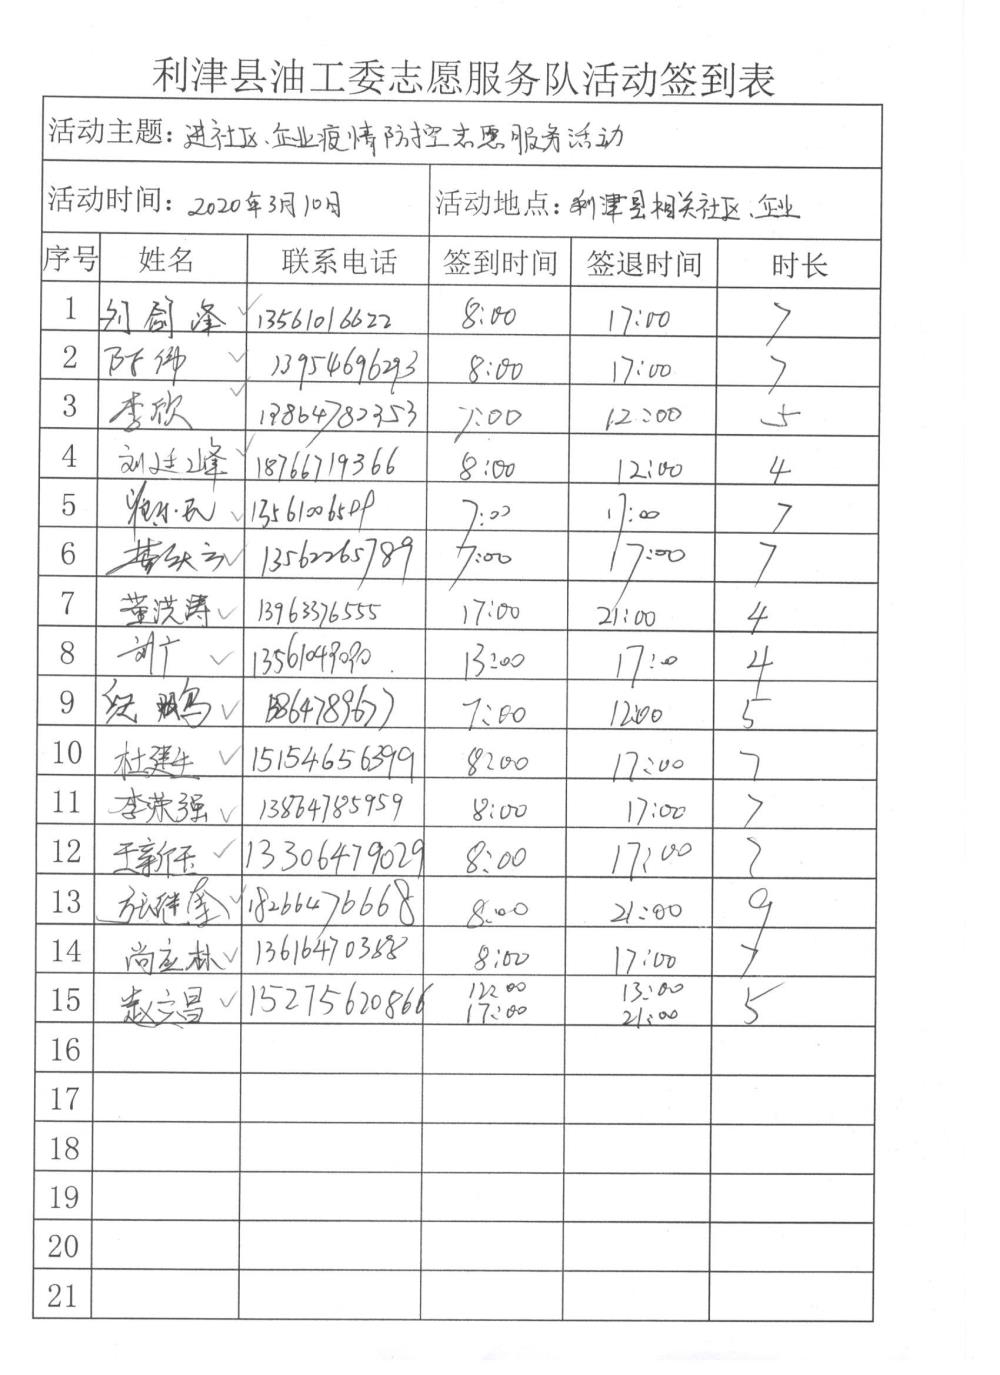 利津县油工委志愿服务队活动签到表
活动主题：进社区、企业疫情防控志愿服务活动
活动时间：2020年3月10日 活动地点：利津县相关社区、企业
序号 姓名 联系电话 签到时间 签退时间 时长
1 刘剑峰 13561016622 8:00 17:00 7
2 陈伟 13954696293 8:00 17:00 7
3 李欣 13864782353 7:00 12:00 5
4 刘廷峰 18766719366 8:00 12:00 4
5 7:00 17:00 7
6 13562265789 7:00 17:00 7
7 董洪涛 13963376555 17:00 21:00 4
8 刘广 13561049090 13:00 17:00 4
9 鹏 7:00 12:00 5
10 杜建生 15154656399 8:00 17:00 7
11 李荣强 13864785959 8:00 17:00 7
12 王新任 13306479029 8:00 17:00 7
13 18266476668 8:00 21:00 9
14 尚应林 13616470388 8:00 17:00 7
15 赵六昌 15275620866 12:00 13:00 5
17:00 21:00
16
17
18
19
20
21